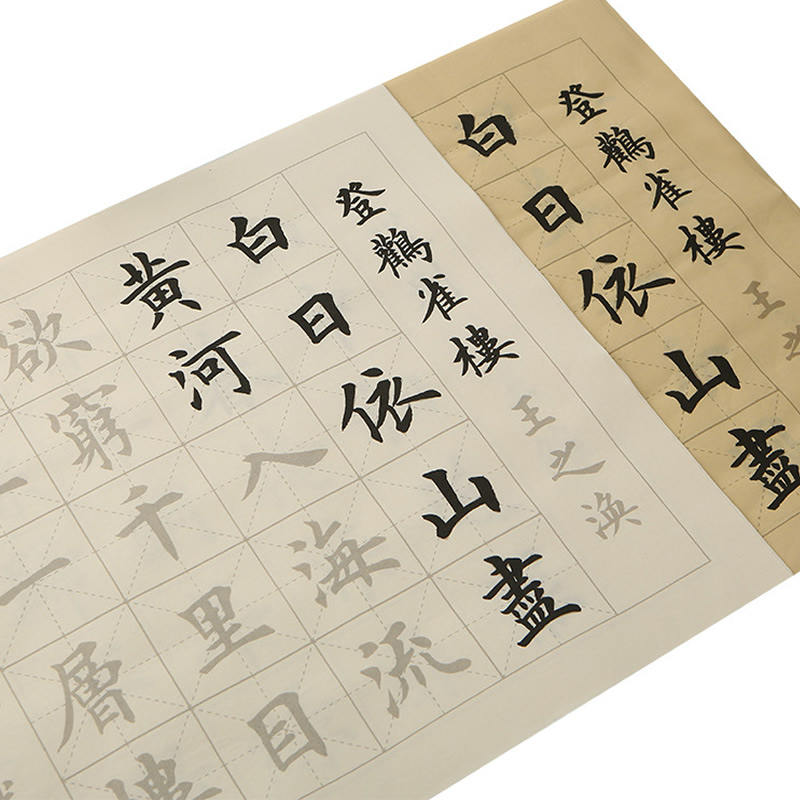 登鸛雀樓 王之
白日依山盡
登鸛雀樓 王之渙
白日依山盡
黄河入海流
欲窮千里目
一層樓